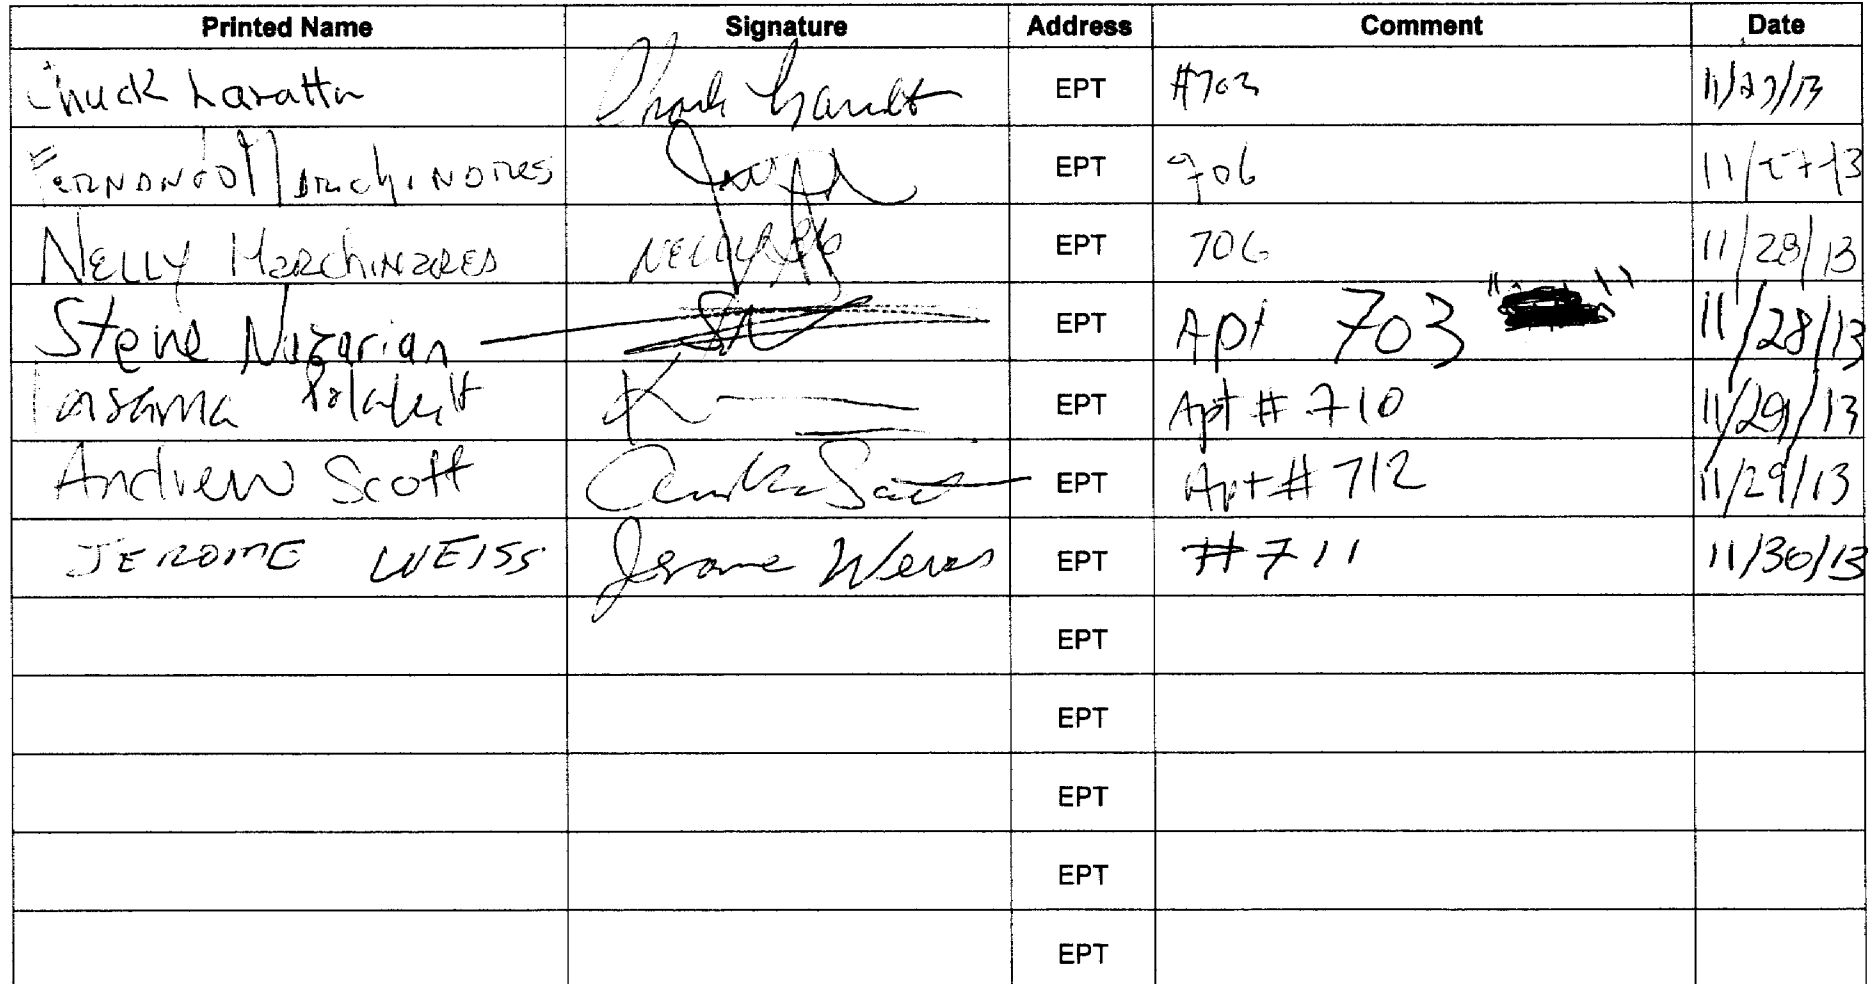 Printed Name Signature Address Comment Date
Chuck Laratta EPT #703 11/27/13
Fernando Marchinares EPT 706 11/27/13
NELLY MARCHINARES NELLY EPT 706 11/28/13
Steve Nazarian EPT Apt 703 11/28/13
EPT Apt # 710 11/29/13
Andrew Scott EPT Apt # 712 11/29/13
JEROME WEISS Jerome Weiss EPT #711 11/30/13
EPT
EPT
EPT
EPT
EPT